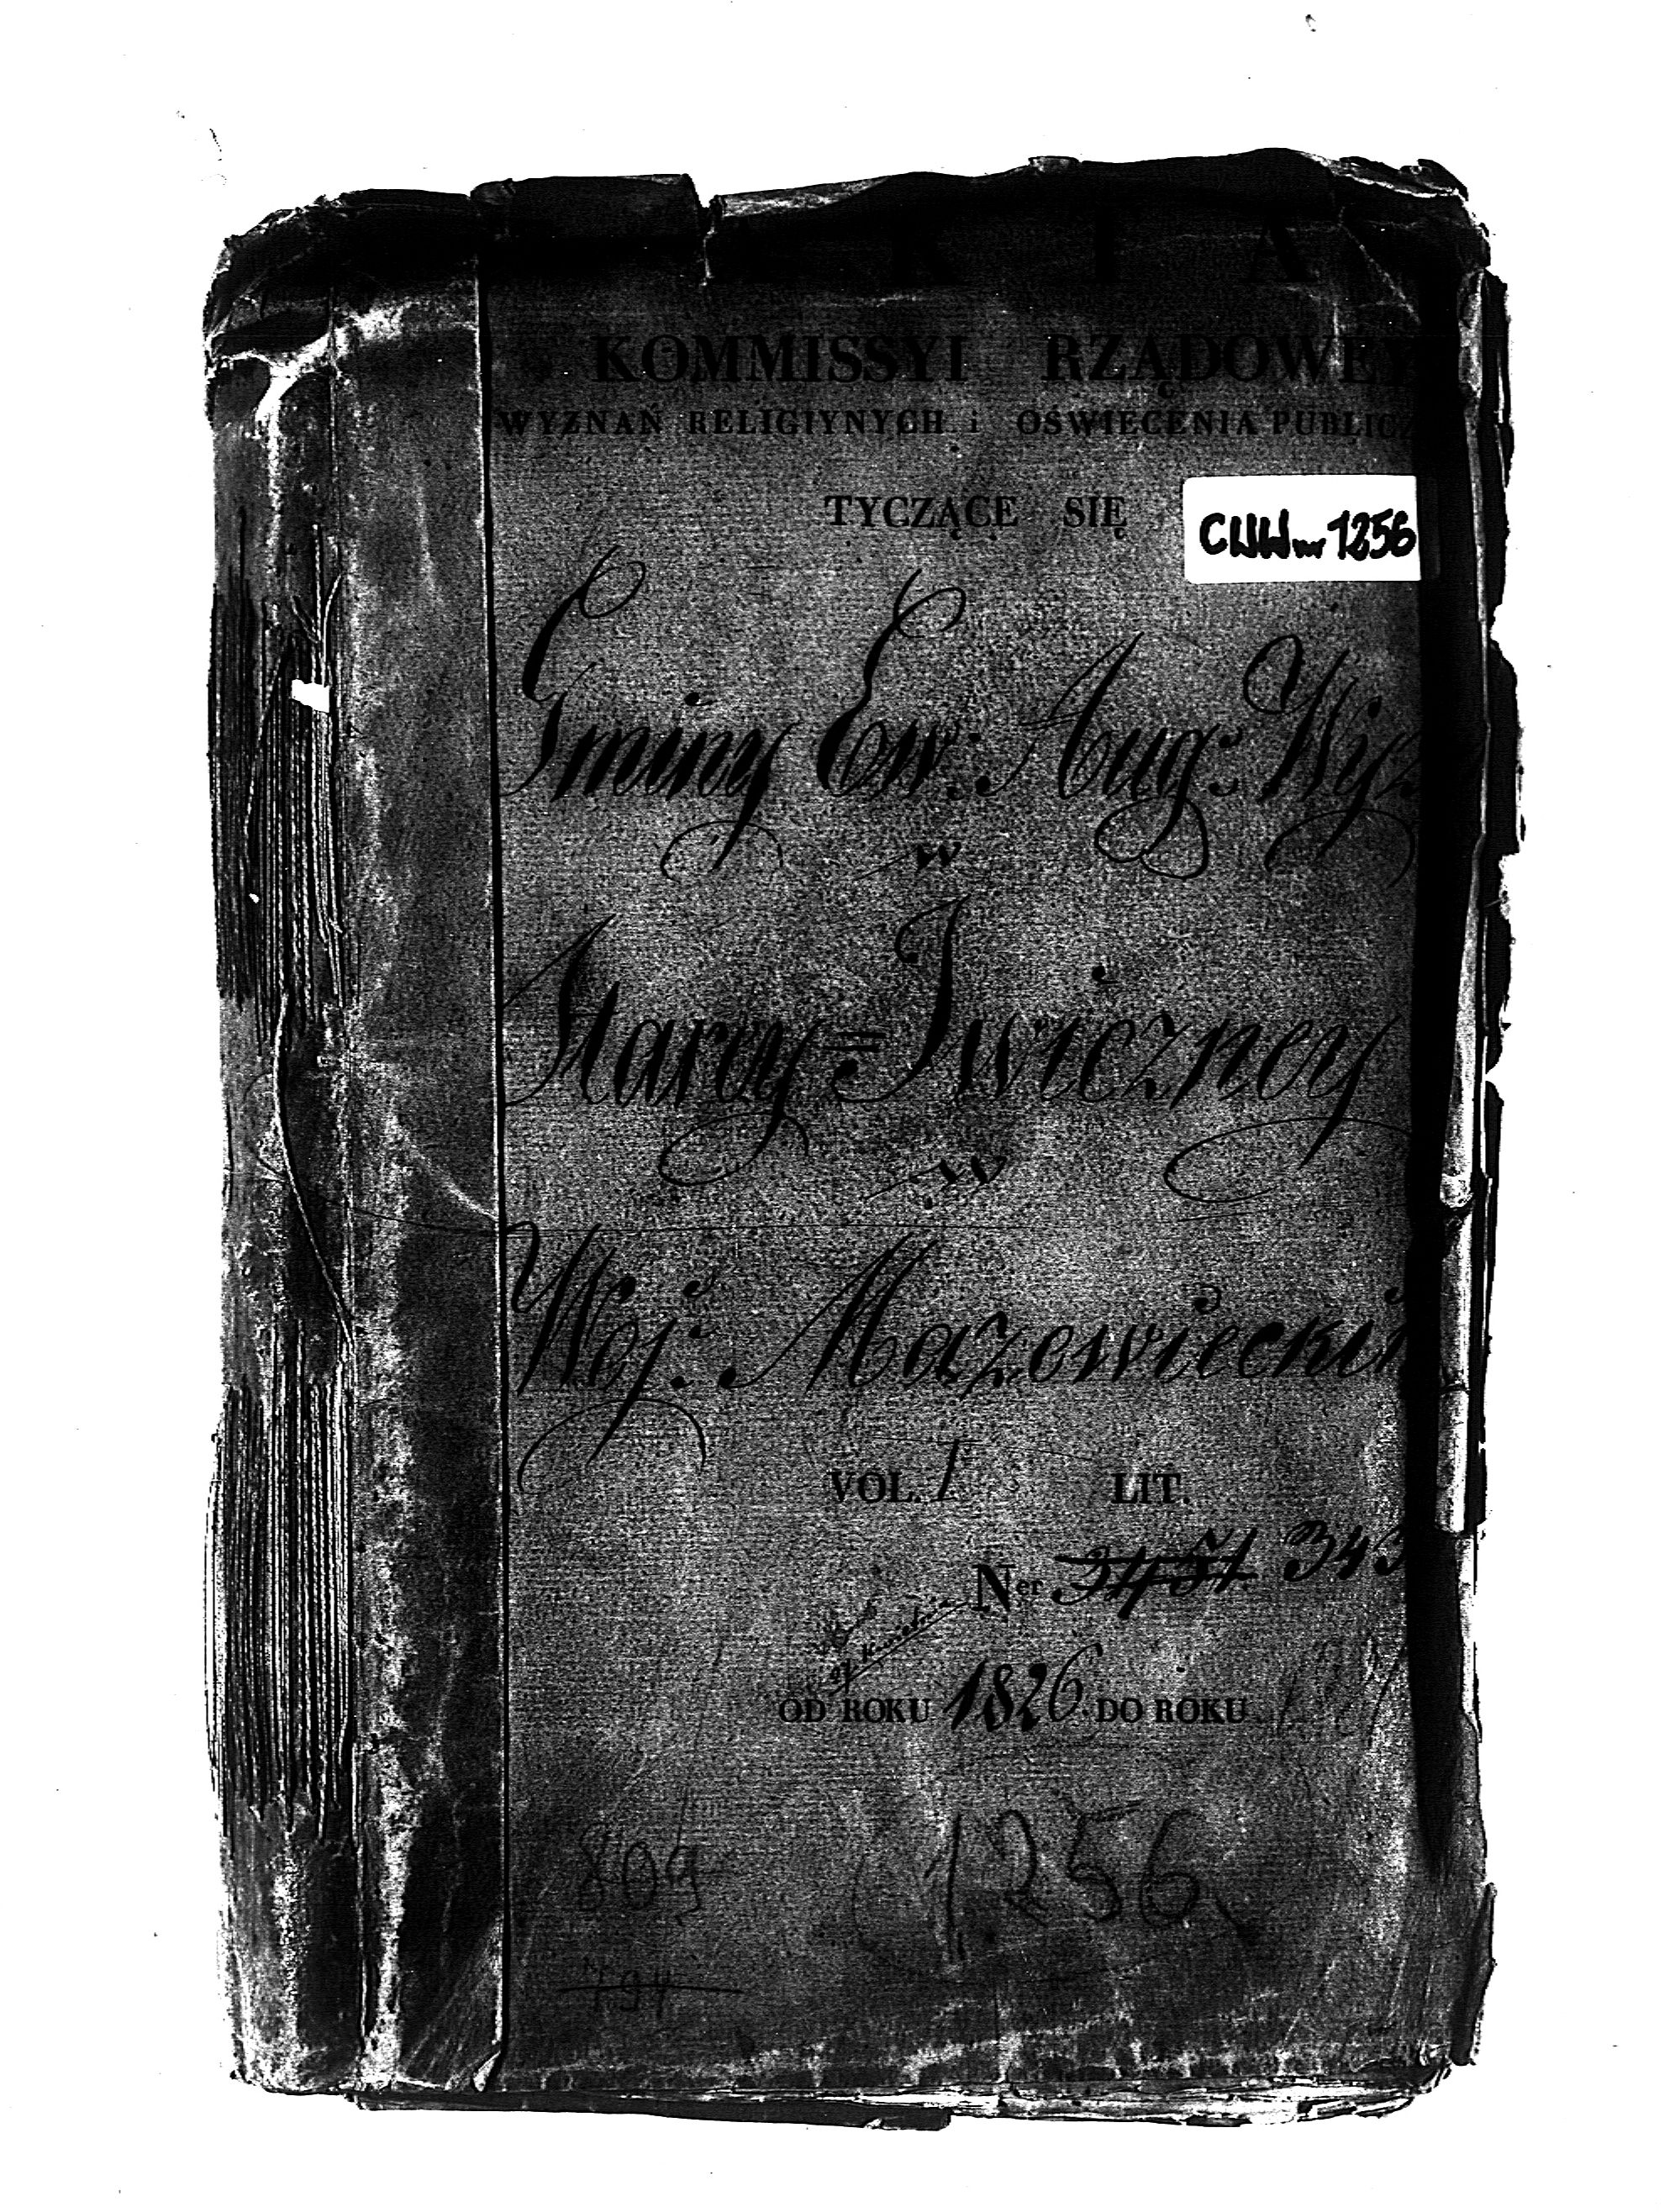 AKTA
KOMMISSYI RZĄDOWEY
WYZNAŃ RELIGIYNYCH i OŚWIECENIA PUBLICZ
TYCZĄCE SIĘ
CWW nr 1256
Gminy Ew: Aug: Wyz
w
Starey=Iwiczney
w
Woj: Mazowieckim
VOL. I LIT.
Ner 3451 343
27 Kwietnia
OD ROKU 1826. DO ROKU
809 1256